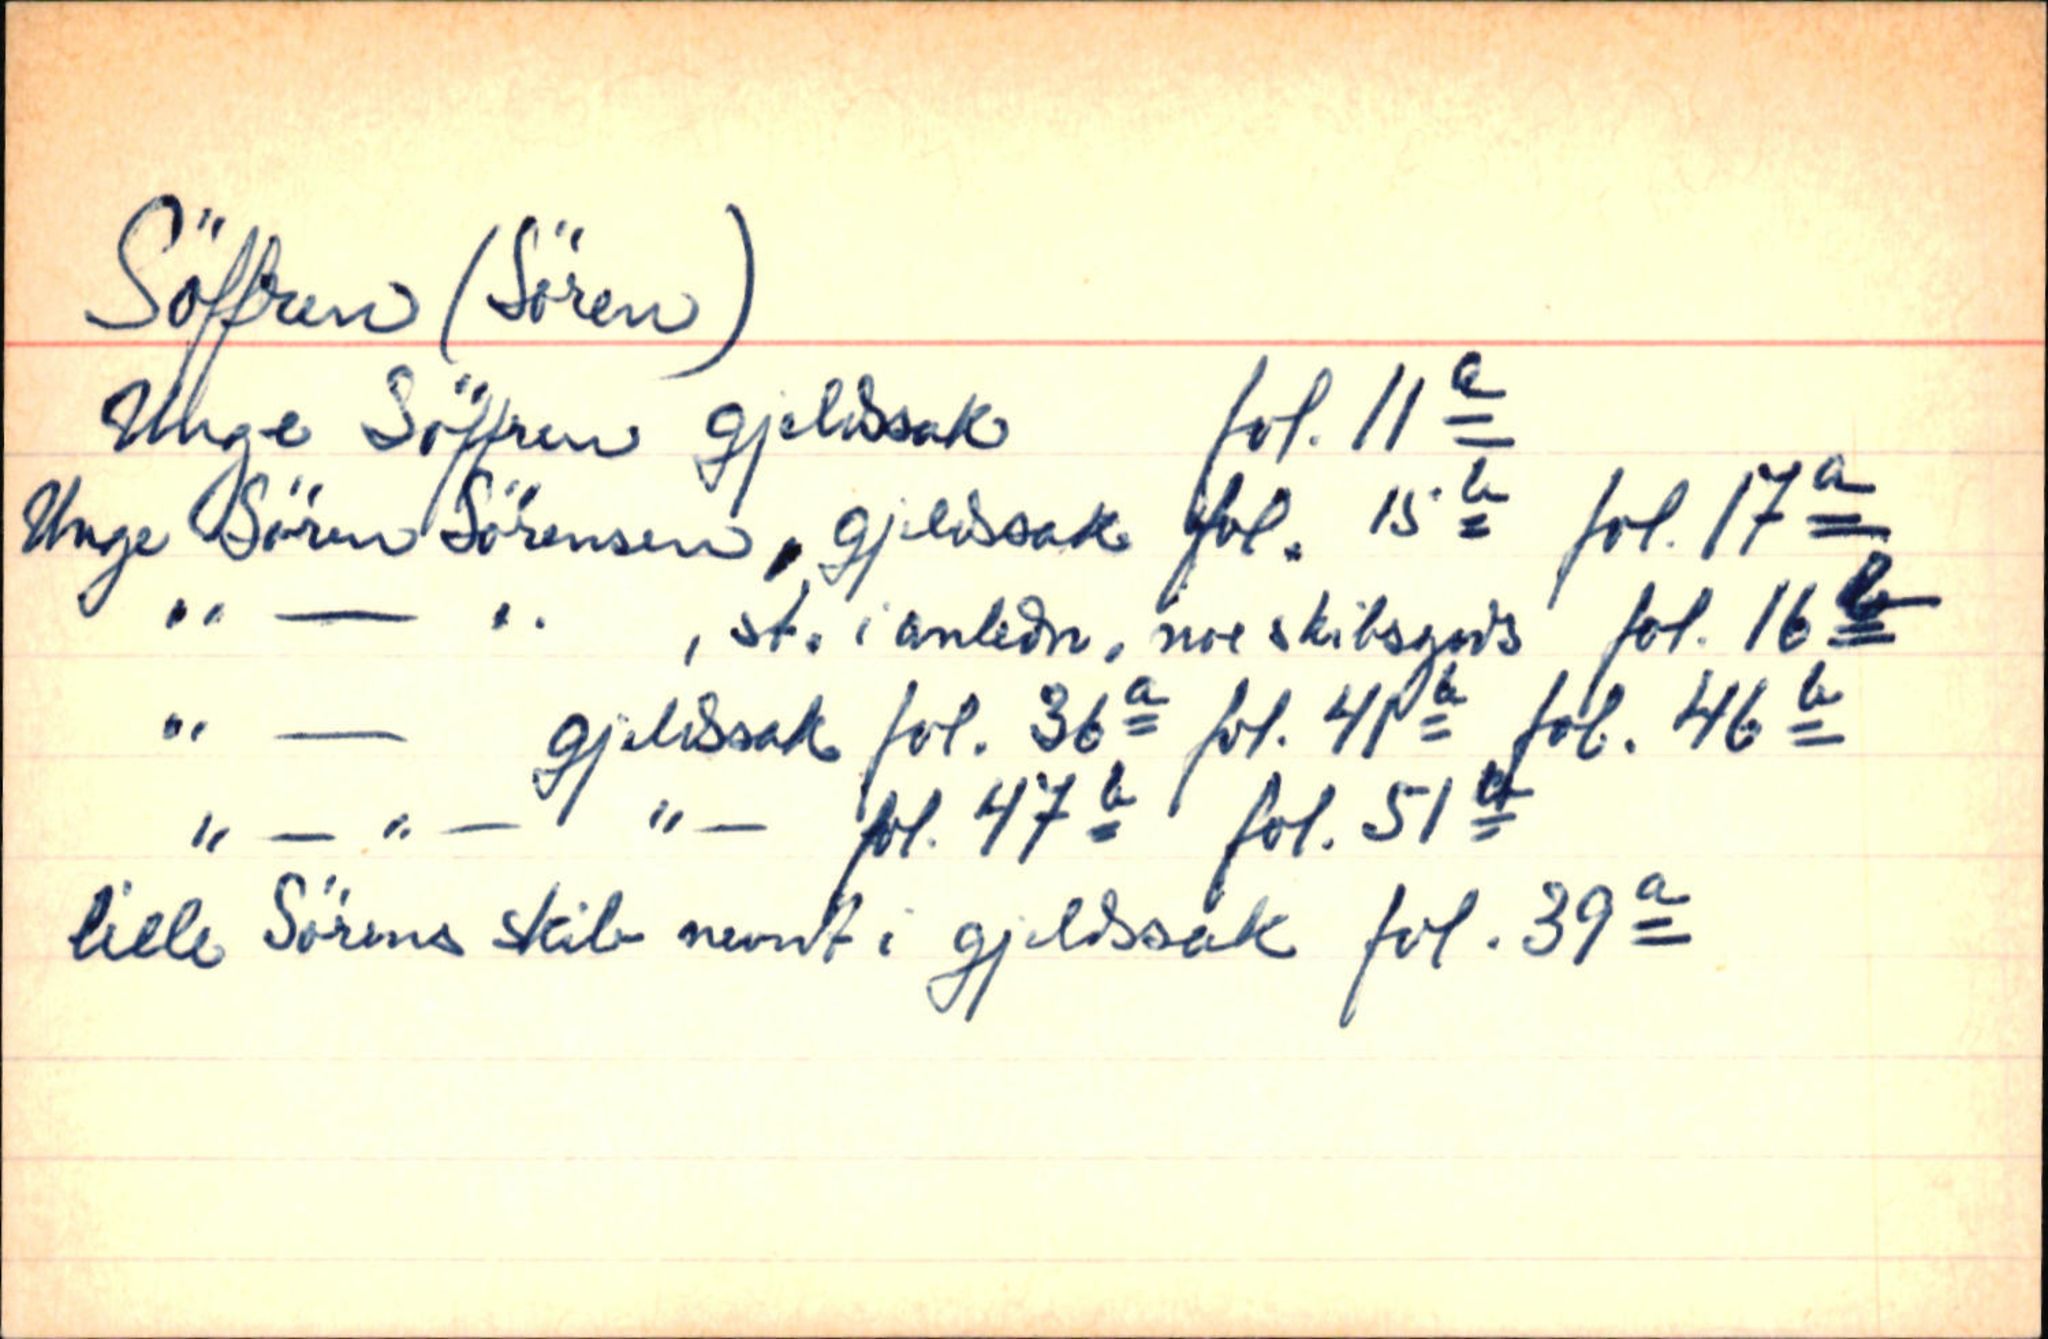 Söffren (Sören)
Unge Söffren gjeldssak fol. 11 a
Unge Sören Sörensen, gjeldssak fol. 15 b fol. 17 a
" — " , st. i anledn. noe skibsgods fol. 16 b
" — gjeldssak fol. 36 a fol. 41 b fol. 46 b
" — " — " — fol. 47 b fol. 51
lille Sörens skib nevnt i gjeldssak fol. 39 a